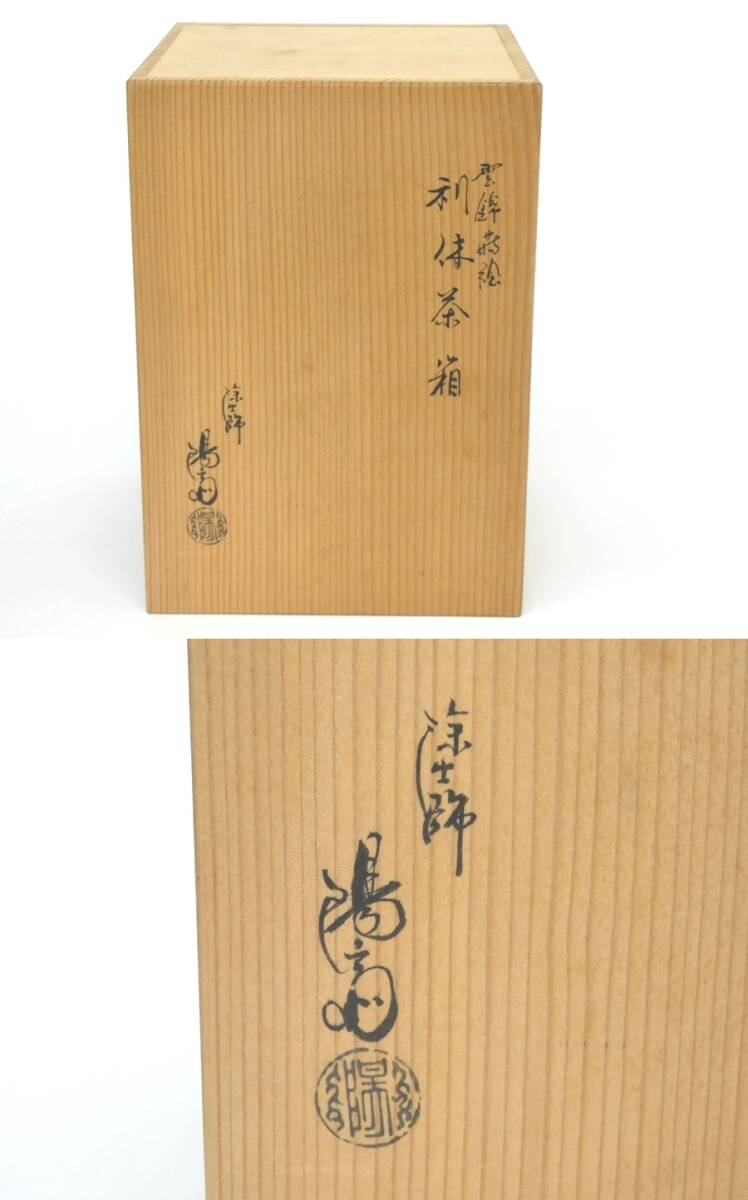 雲錦蒔絵
利休茶箱
塗師
陽斎
塗師
陽斎